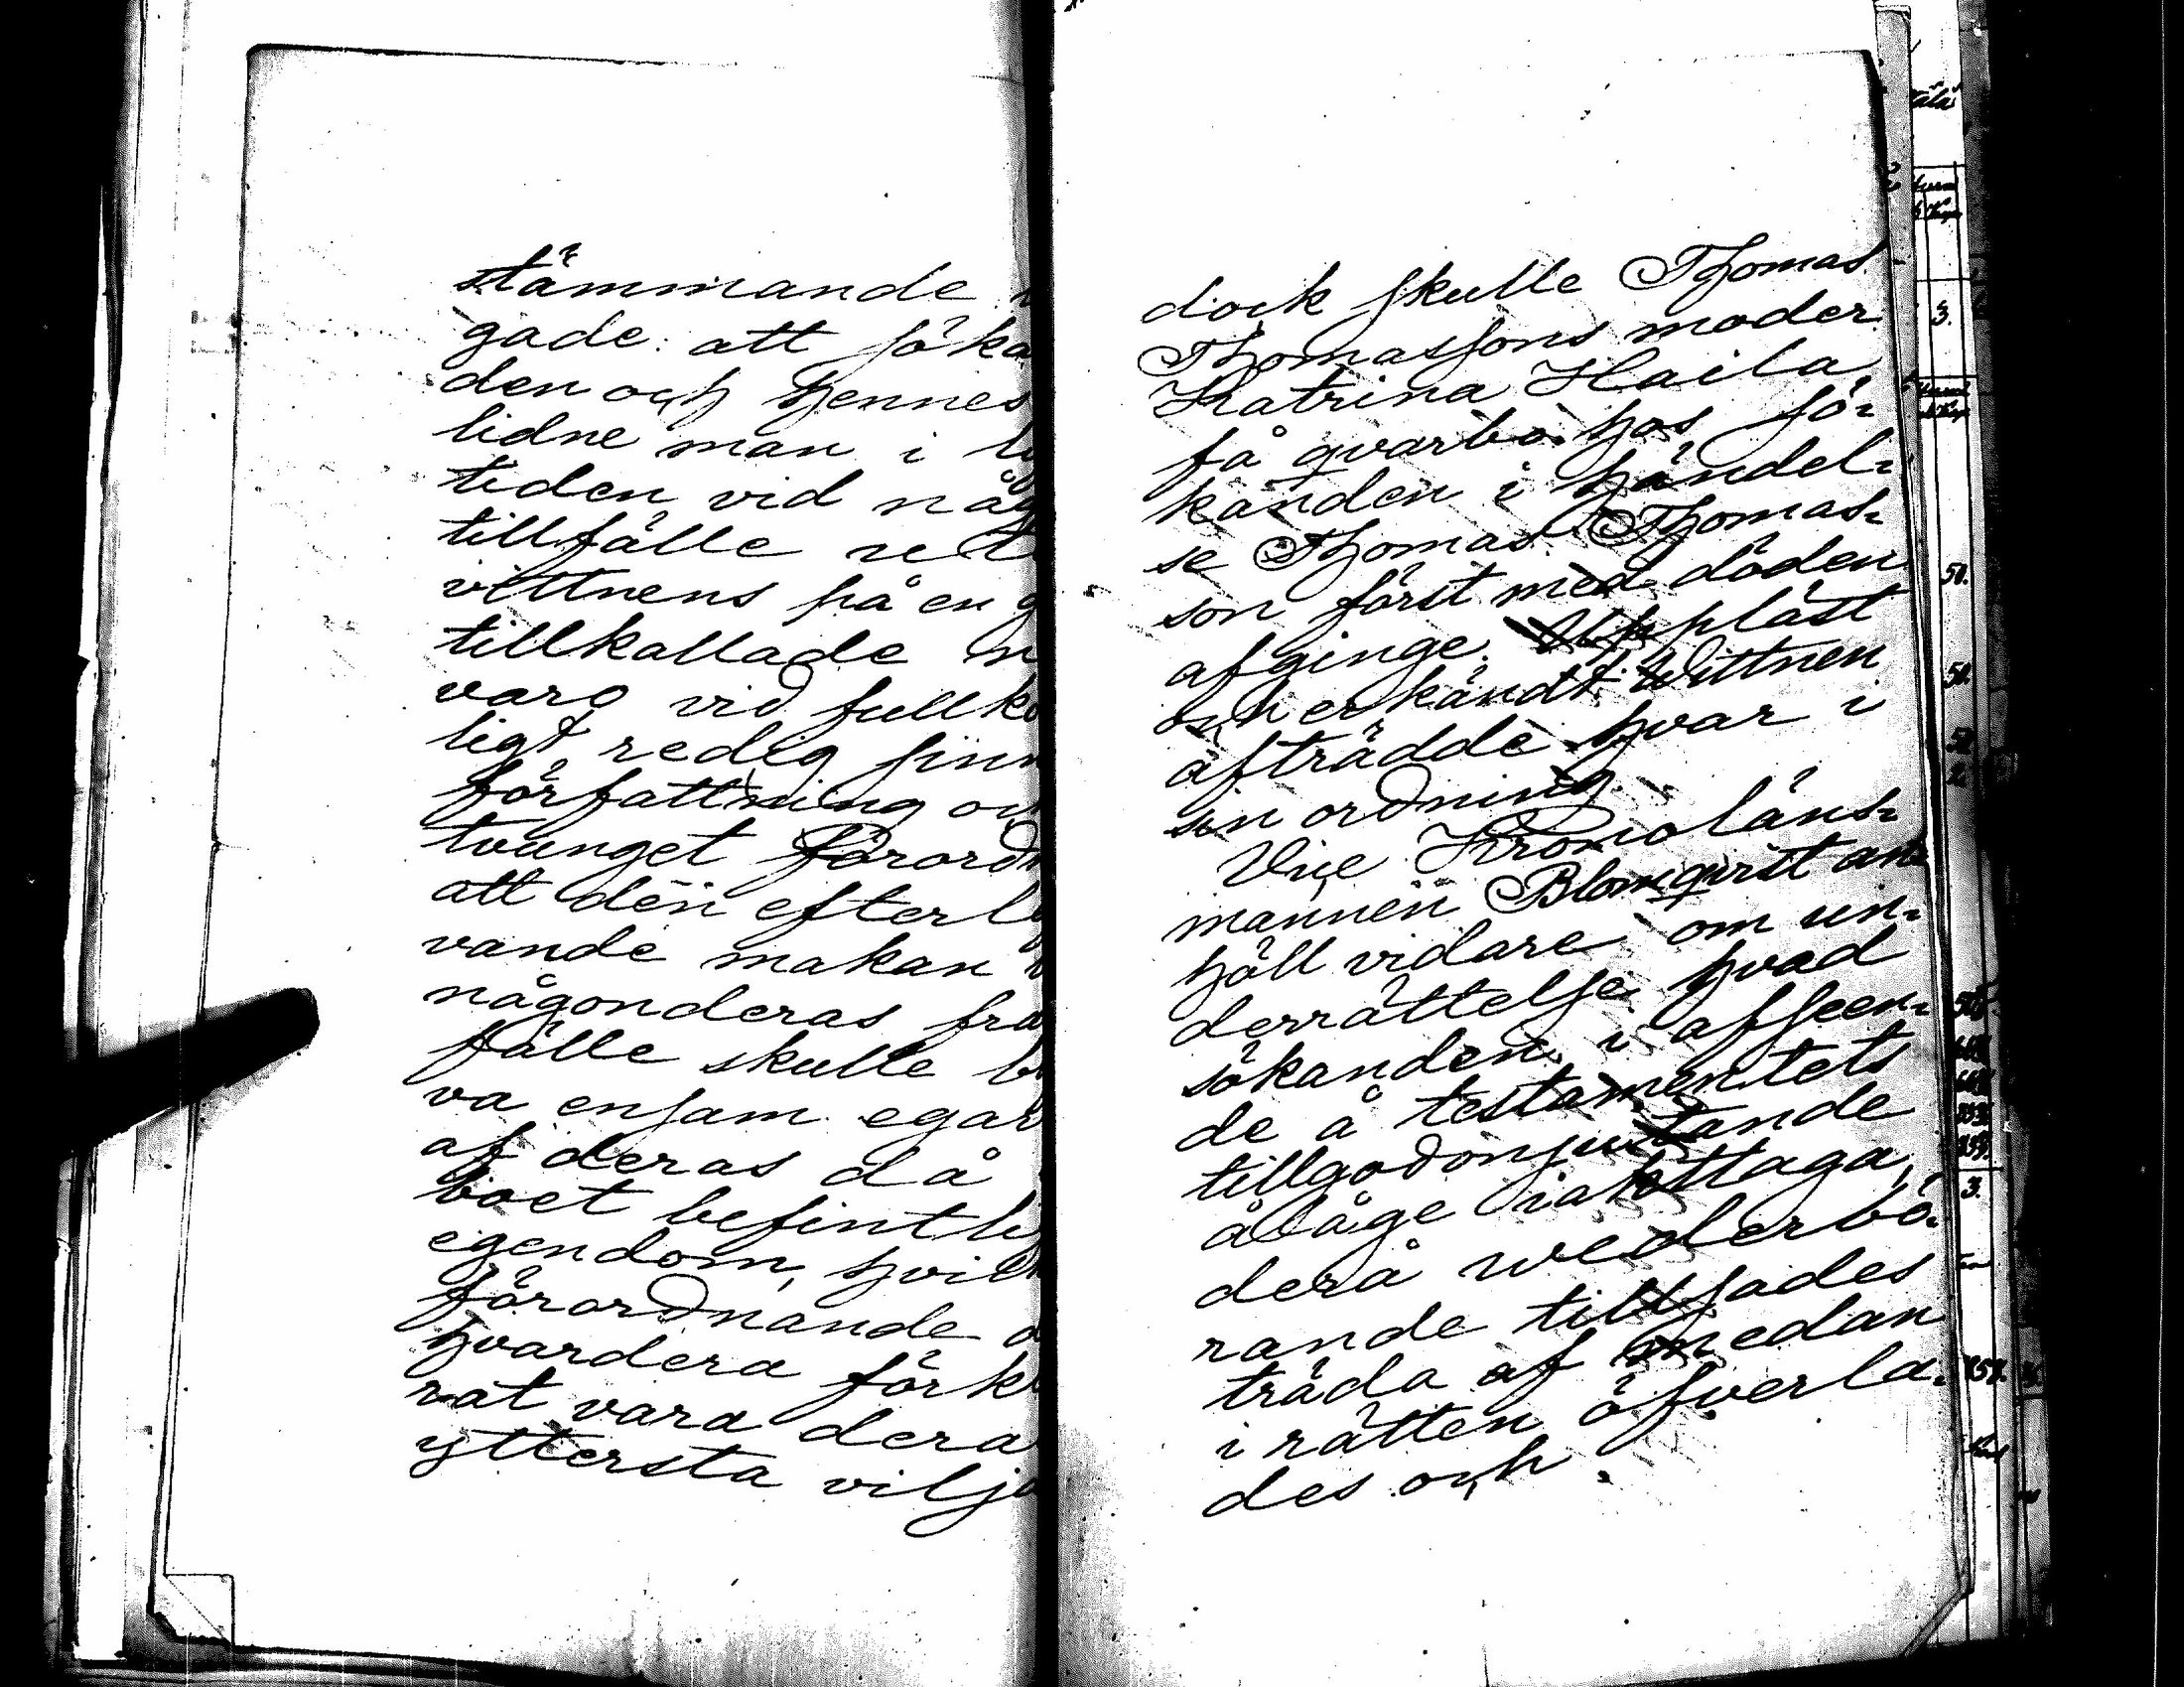 stämmande
gade: att söka
den och hennes
lidne man i
tiden vid någ
tillfälle ut
vittnens på en g
tillkallade
varo vid fullko
ligt redig sinn
författning oc
tvunget förordn
att den efterle
vande makan
någonderas från
fälle skulle b
va ensam egar
af deras då
boet befintli
egendom, hvilk
förordnande
hvardera förkl
rat vara dera
yttersta vilja
dock skulle Thomas
Thomassons moder
Katrina Haila
få qvarbo hos sö-
kanden i händel-
se Thomas Thomas-
son först med döden
afginge. Uppläst
och erkändt. Wittnen
afträdde hvar i
sin ordning.
Vice Kronoläns-
mannen Blomqvist an-
höll vidare om un-
derrättelse hvad
sökanden i afseen-
de å testamentets
tillgodonjutande
ålåge iakttaga,
derå wederbö-
rande tillsades
träda af medan
i rätten öfverla-
des och
3.
50.
50.
3.